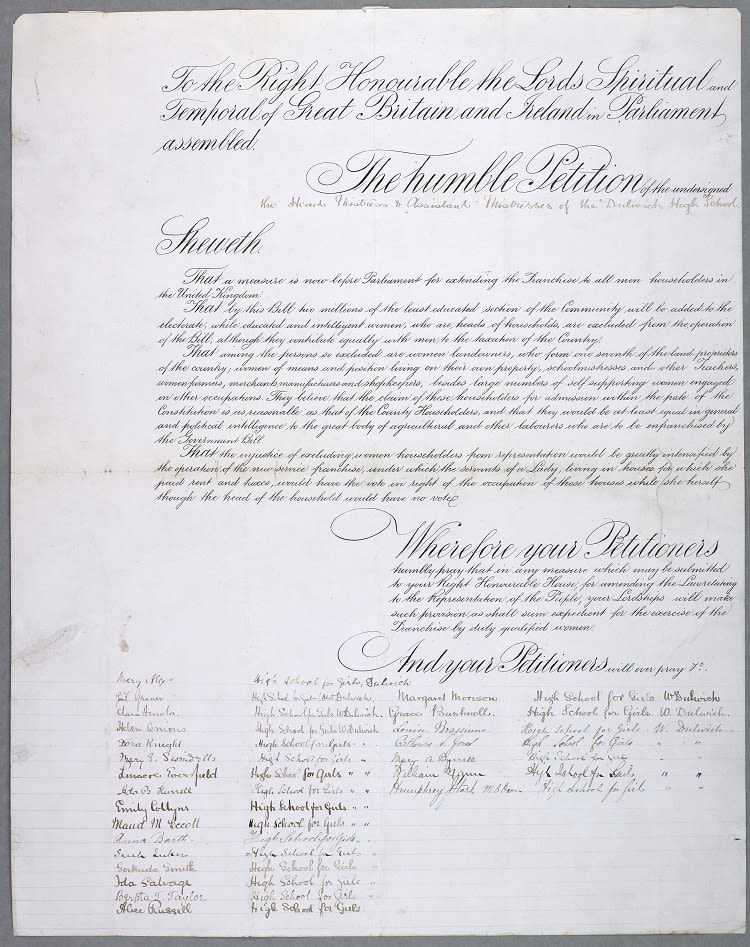 To the Right Honourable the Lords Spiritual and
Temporal of Great Britain and Ireland in Parliament
assembled.
The humble Petition of the undersigned
the Head Mistress & Assistant Mistresses of the Dulwich High School
Sheweth.
That a measure is now before Parliament for extending the Franchise to all men householders in
the United Kingdom
That by this Bill two millions of the least educated section of the Community will be added to the
electorate, while educated and intelligent women, who are heads of households, are excluded from the operation
of the Bill, although they contribute equally with men to the taxation of the Country.
That among the persons so excluded are women landowners, who form one seventh of the land proprietors
of the country; women of means and position living on their own property, schoolmistresses and other Teachers,
women farmers, merchants manufacturers and shopkeepers, besides large numbers of self supporting women engaged
in other occupations. They believe that the claim of these householders for admission within the pale of the
Constitution is as reasonable as that of the County Householders, and that they would be at least equal in general
and political intelligence to the great body of agricultural and other labourers who are to be enfranchised by
the Government Bill.
That the injustice of excluding women householders from representation would be greatly intensified by
the operation of the new service franchise, under which the servants of a Lady, living in houses for which she
paid rent and taxes, would have the vote in right of the occupation of those houses while she herself
though the head of the household would have no vote
Wherefore your Petitioners
humbly pray that in any measure which may be submitted
to your Right Honourable House, for amending the Law relating
to the Representation of the People, your Lordships will make
such provision as shall seem expedient for the exercise of the
Franchise by duly qualified women.
And your Petitioners will ever pray &c.
Mary High School for Girls, Dulwich
High School for Girls West Dulwich. Margaret Morison High School for Girls W Dulwich
Clara High School for Girls W. Dulwich. Grace High School for Girls W. Dulwich.
Helen High School for Girls W Dulwich Louise High School for Girls W. Dulwich
Dora Knight High School for Girls " Catherine High School for Girls " "
Mary E. High School for Girls " " Mary A High School for Girls " "
High School for Girls " " William High School for Girls " "
Ada B. High School for Girls " " Humphrey High School for Girls " "
Emily Collyns High School for Girls " "
Maud M High School for Girls " "
Anna Barth High School for Girls "
Sarah High School for Girls "
Gertrude Smith High School for Girls "
Ida Salvage High School for Girls "
Bertha L Taylor High School for Girls "
Alice Russell High School for Girls.